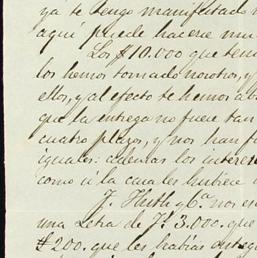 ya te tengo manifestado
aquí puede hacerse mu
Los $10.000 que teni
los hemos tomado nosotros, y
ellos, y al efecto te hemos ab
que la entrega no fuere tan
cuatro plazos, y nos han
iguales: además los interes
como si la casa les hubiere
J. y Cª nos es
una Letra de 3.000. que
$200. que les habías entreg